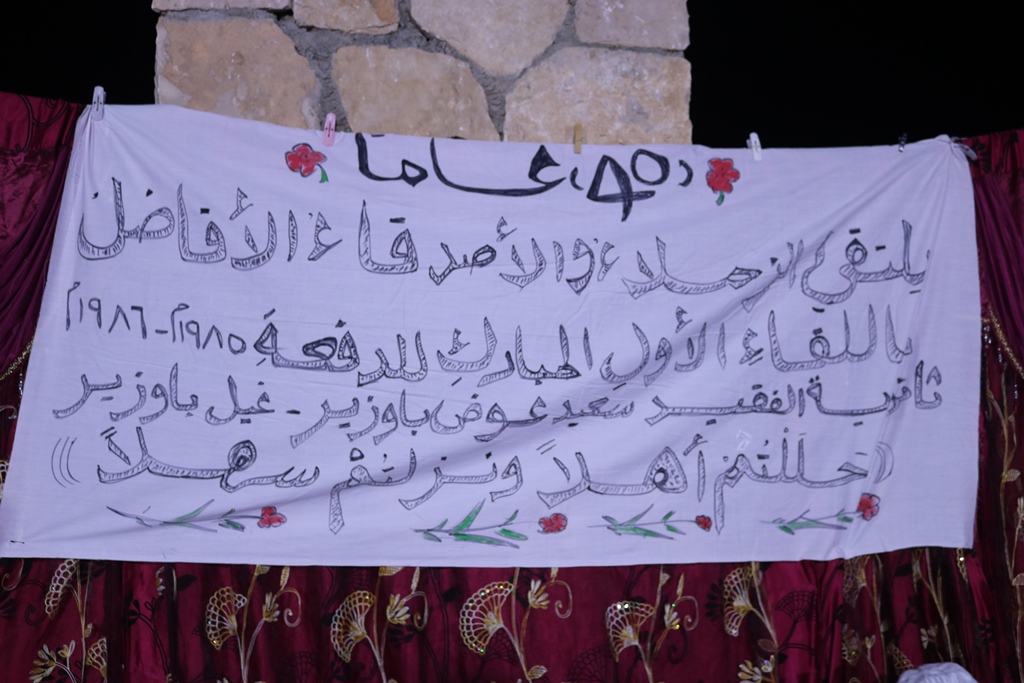 (40) عاماً
يلتقي الزملاء والأصدقاء الأفاضل
باللقاء الأول المبارك للدفعة ١٩٨٥م-١٩٨٦م
ثانوية الفقيد سعيد عوض باوزير - غيل باوزير
((حَلَلْتُمْ أهلاً ونزلتُمْ سهلاً))